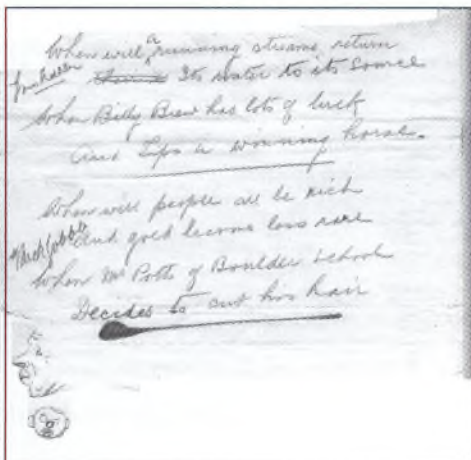 When will a running streams return
Its water to its source
When Billy Brew has lots of luck
And Tips a winning horse.
When will people all be rich
And gold become less rare
When Mr Potts of Boulder School
Decides to cut his hair